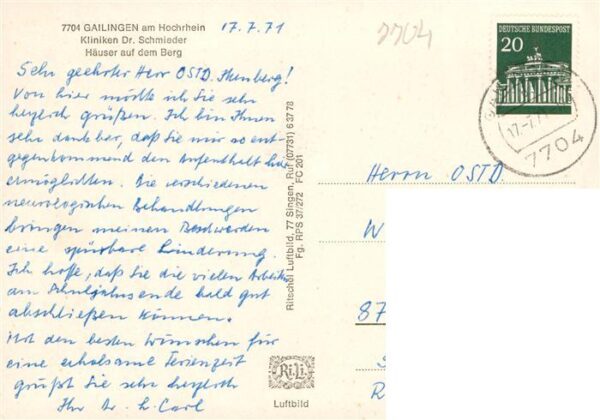 7704 GAILINGEN am Hochrhein
Kliniken Dr. Schmieder
Häuser auf dem Berg
17.7.71
7704
DEUTSCHE BUNDESPOST
20
17.-7.71
7704
Sehr geehrter Herr OSTD.
Von hier möchte ich Sie sehr
herzlich grüßen. Ich bin Ihnen
sehr dankbar, daß Sie mir so ent-
gegenkommend den Aufenthalt hier
ermöglichten. Die verschiedenen
neurologischen Behandlungen
bringen meinen Beschwerden
eine spürbare Linderung.
Ich hoffe, daß Sie die vielen Arbeiten
am Schuljahrsende bald gut
abschließen können.
Mit den besten Wünschen für
eine erholsame Ferienzeit
grüßt Sie sehr herzlich
Ihr Dr. L. Carl
Ritschel Luftbild, 77 Singen, Ruf (07731) 63778
Fg. RPS 37/272 FC 201
Herrn OSTD.
W
87
S
R
Ri.Li.
Luftbild